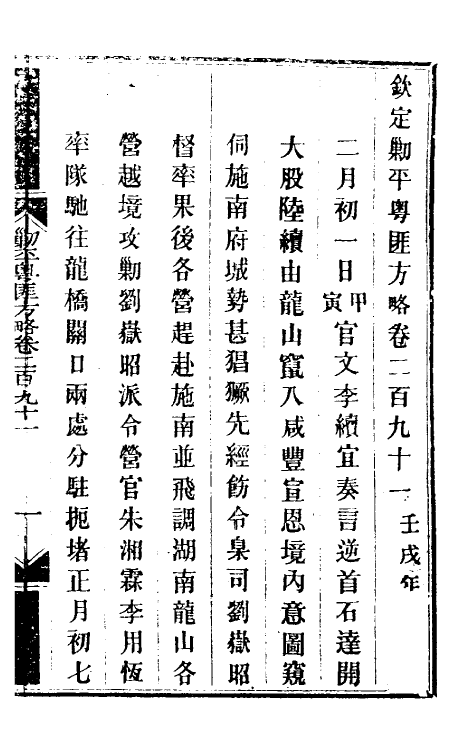 欽定勦平粤匪方略卷二百九十一 壬戌年
二月初一日甲寅官文李續宜奏言逆首石達開
大股陸續由龍山竄入咸豐宣恩境内意圖窺
伺施南府城勢甚猖獗先經飭令臬司劉嶽昭
督率果後各營趕赴施南並飛調湖南龍山各
營越境攻勦劉嶽昭派令營官朱湘霖李用恆
率隊馳往龍橋關口兩處分駐扼堵正月初七
勦平粤匪方略卷二百九十一 一